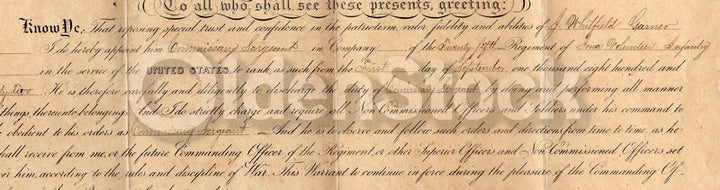 To all who shall see these presents, greeting:
Know Ye. That reposing special trust and confidence in the patriotism, valor, fidelity and abilities of J. Whitfield Garner
I do hereby appoint him Commissary Sergeant in Company of the Twenty Fifth Regiment of Iowa Volunteer Infantry
in the service of the UNITED STATES to rank as such from the First day of September one thousand eight hundred and
Two He is therefore carefully and diligently to discharge the duty of Commissary Sergeant by doing and performing all manner
things thereunto belonging. And I do strictly charge and require all Non Commissioned Officers and Soldiers under his command to
be obedient to his orders as Commissary Sergeant. And he is to observe and follow such orders and directions from time to time, as he
shall receive from me, or the future Commanding Officer of the Regiment, or other Superior Officers and Non Commissioned Officers set
over him, according to the rules and discipline of War. This Warrant to continue in force during the pleasure of the Commanding Of-